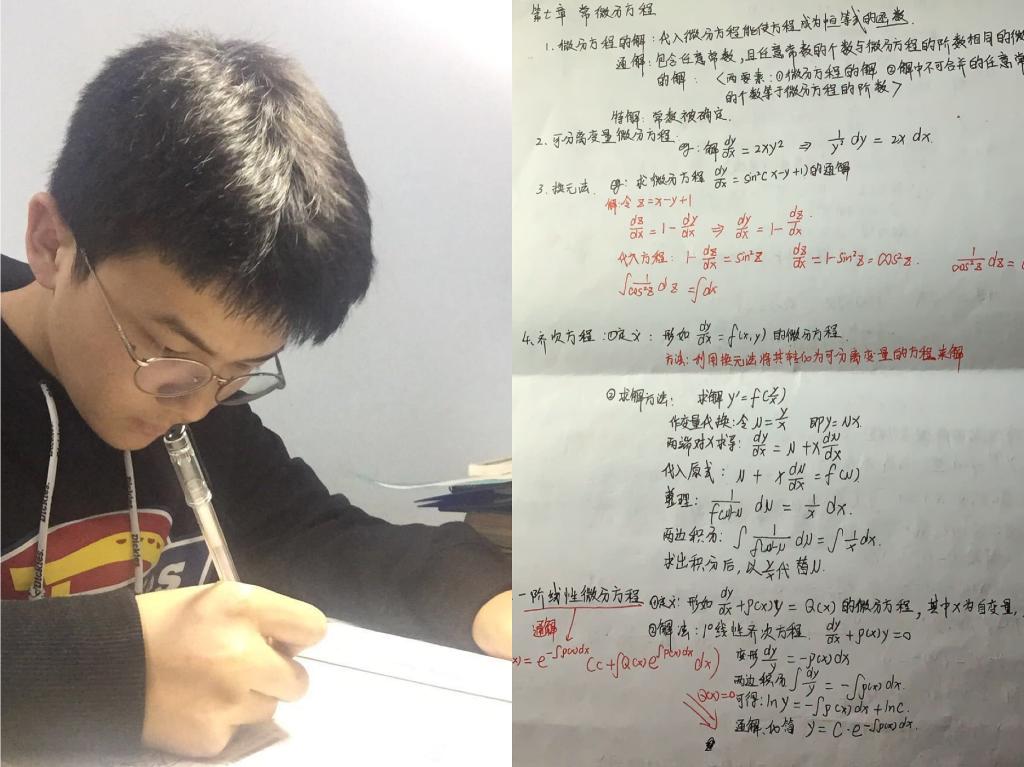 Dickies
Dickies
第七章 常微分方程
1. 微分方程的解：代入微分方程能使方程成为恒等式的函数.
通解：包含任意常数，且任意常数的个数与微分方程的阶数相同的微
的解：〈两要素：①微分方程的解 ②解中不可合并的任意常
的个数等于微分方程的阶数〉
特解：常数被确定.
2. 可分离变量微分方程.
eg：解 dy/dx = 2xy² ⇒ 1/y² dy = 2x dx.
3. 换元法. eg：求微分方程 dy/dx = sin²(x-y+1)的通解
解：令 z=x-y+1
dz/dx = 1 - dy/dx ⇒ dy/dx = 1 - dz/dx.
代入方程：1 - dz/dx = sin²z dz/dx = 1-sin²z = cos²z. 1/cos²z dz =
∫ 1/cos²z dz = ∫dx
4. 齐次方程：①定义：形如 dy/dx = f(x,y) 的微分方程.
方法：利用换元法将其转化为可分离变量的方程来解
②求解方法： 求解 y' = f(y/x)
作变量代换：令 u = y/x 即y=ux.
两端对x求导：dy/dx = u + x du/dx
代入原式：u + x du/dx = f(u)
整理：1/(f(u)-u) du = 1/x dx.
两边积分：∫ 1/(f(u)-u) du = ∫ 1/x dx.
求出积分后，以 y/x 代替u.
一阶线性微分方程 ①定义：形如 dy/dx + p(x)y = Q(x) 的微分方程，其中x为自变量，
通解 ②解法：1° 线性齐次方程. dy/dx + p(x)y = 0
x) = e^{-∫p(x)dx} (c+∫Q(x)e^{∫p(x)dx} dx)
变形 dy/y = -p(x)dx
两边积分 ∫ dy/y = -∫p(x)dx.
Q(x)=0
可得：ln y = -∫p(x)dx + ln c.
通解化简 y = c·e^{-∫p(x)dx}.